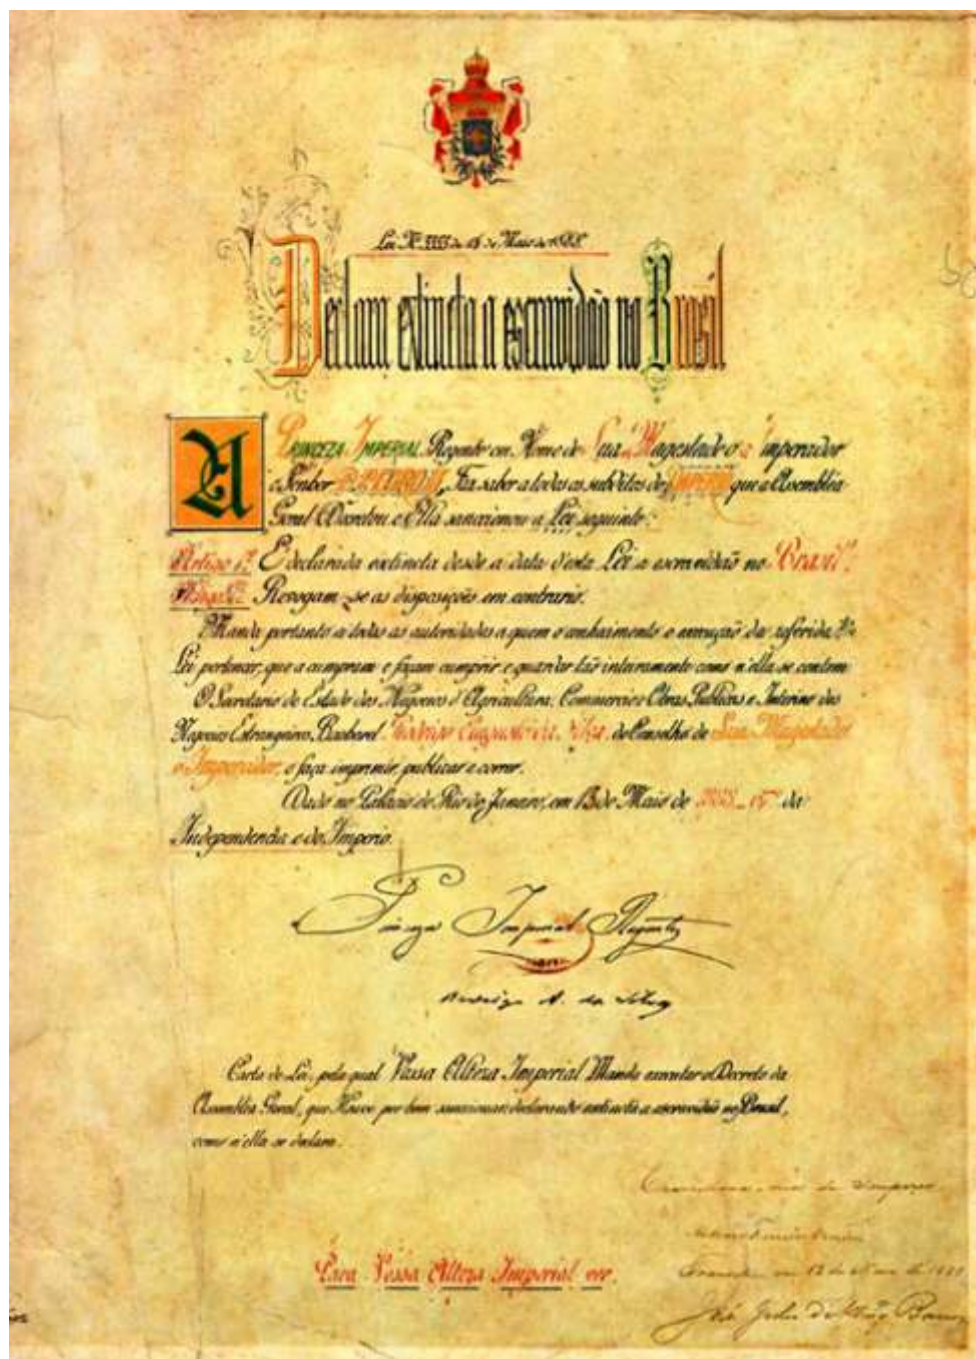 Lei Nº 3353 de 13 de Maio de 1888
Declara extincta a escravidão no Brasil
A PRINCEZA IMPERIAL Regente em Nome de Sua Magestade o Imperador
o Senhor D. PEDRO II, Faz saber a todos os subditos do IMPERIO que a Assembléa
Geral Decretou e Ella sanccionou a Lei seguinte:
Artigo 1º É declarada extincta desde a data d'esta Lei a escravidão no Brazil.
Revogam-se as disposições em contrario.
Manda portanto a todas as autoridades a quem o conhecimento e execução da referida
Lei pertencer, que a cumpram e façam cumprir e guardar tão inteiramente como n'ella se contem
O Secretario de Estado dos Negocios d'Agricultura, Commercio e Obras Publicas e Interino dos
Negocios Estrangeiros, Bacharel Rodrigo Augusto da Silva, do Conselho de Sua Magestade
o Imperador, o faça imprimir, publicar e correr.
Dado no Palacio do Rio de Janeiro, em 13 de Maio de 1888, 67º da
Independencia e do Imperio.
Princeza Imperial Regente
Rodrigo A. da Silva
Carta de Lei, pela qual Vossa Alteza Imperial Manda executar o Decreto da
Assembléa Geral, que Houve por bem sanccionar, declarando extincta a escravidão no Brasil,
como n'ella se declara.
Para Vossa Alteza Imperial ver.